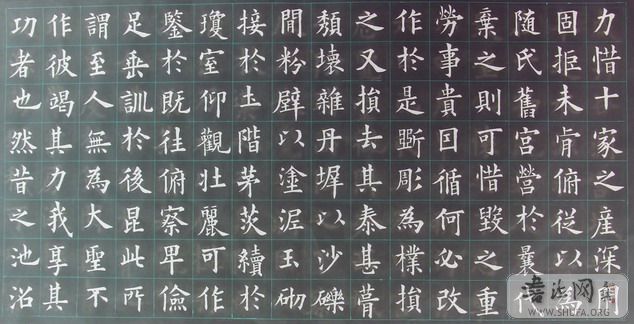 力惜十家之產深閇
固拒未肯俯從以為
随氏舊宮營於曩代
棄之則可惜毀之重
勞事貴因循何必改
作於是斵彫為樸損
之又損去其泰甚葺
頹壞雜丹墀以沙礫
閒粉壁以塗泥玉砌
接於土階茅茨續於
瓊室仰觀壯麗可作
鑒於既往俯察卑儉
足垂訓於後昆此所
謂至人無為大聖不
作彼竭其力我享其
功者也然昔之池沼
WWW.SHUFA.ORG